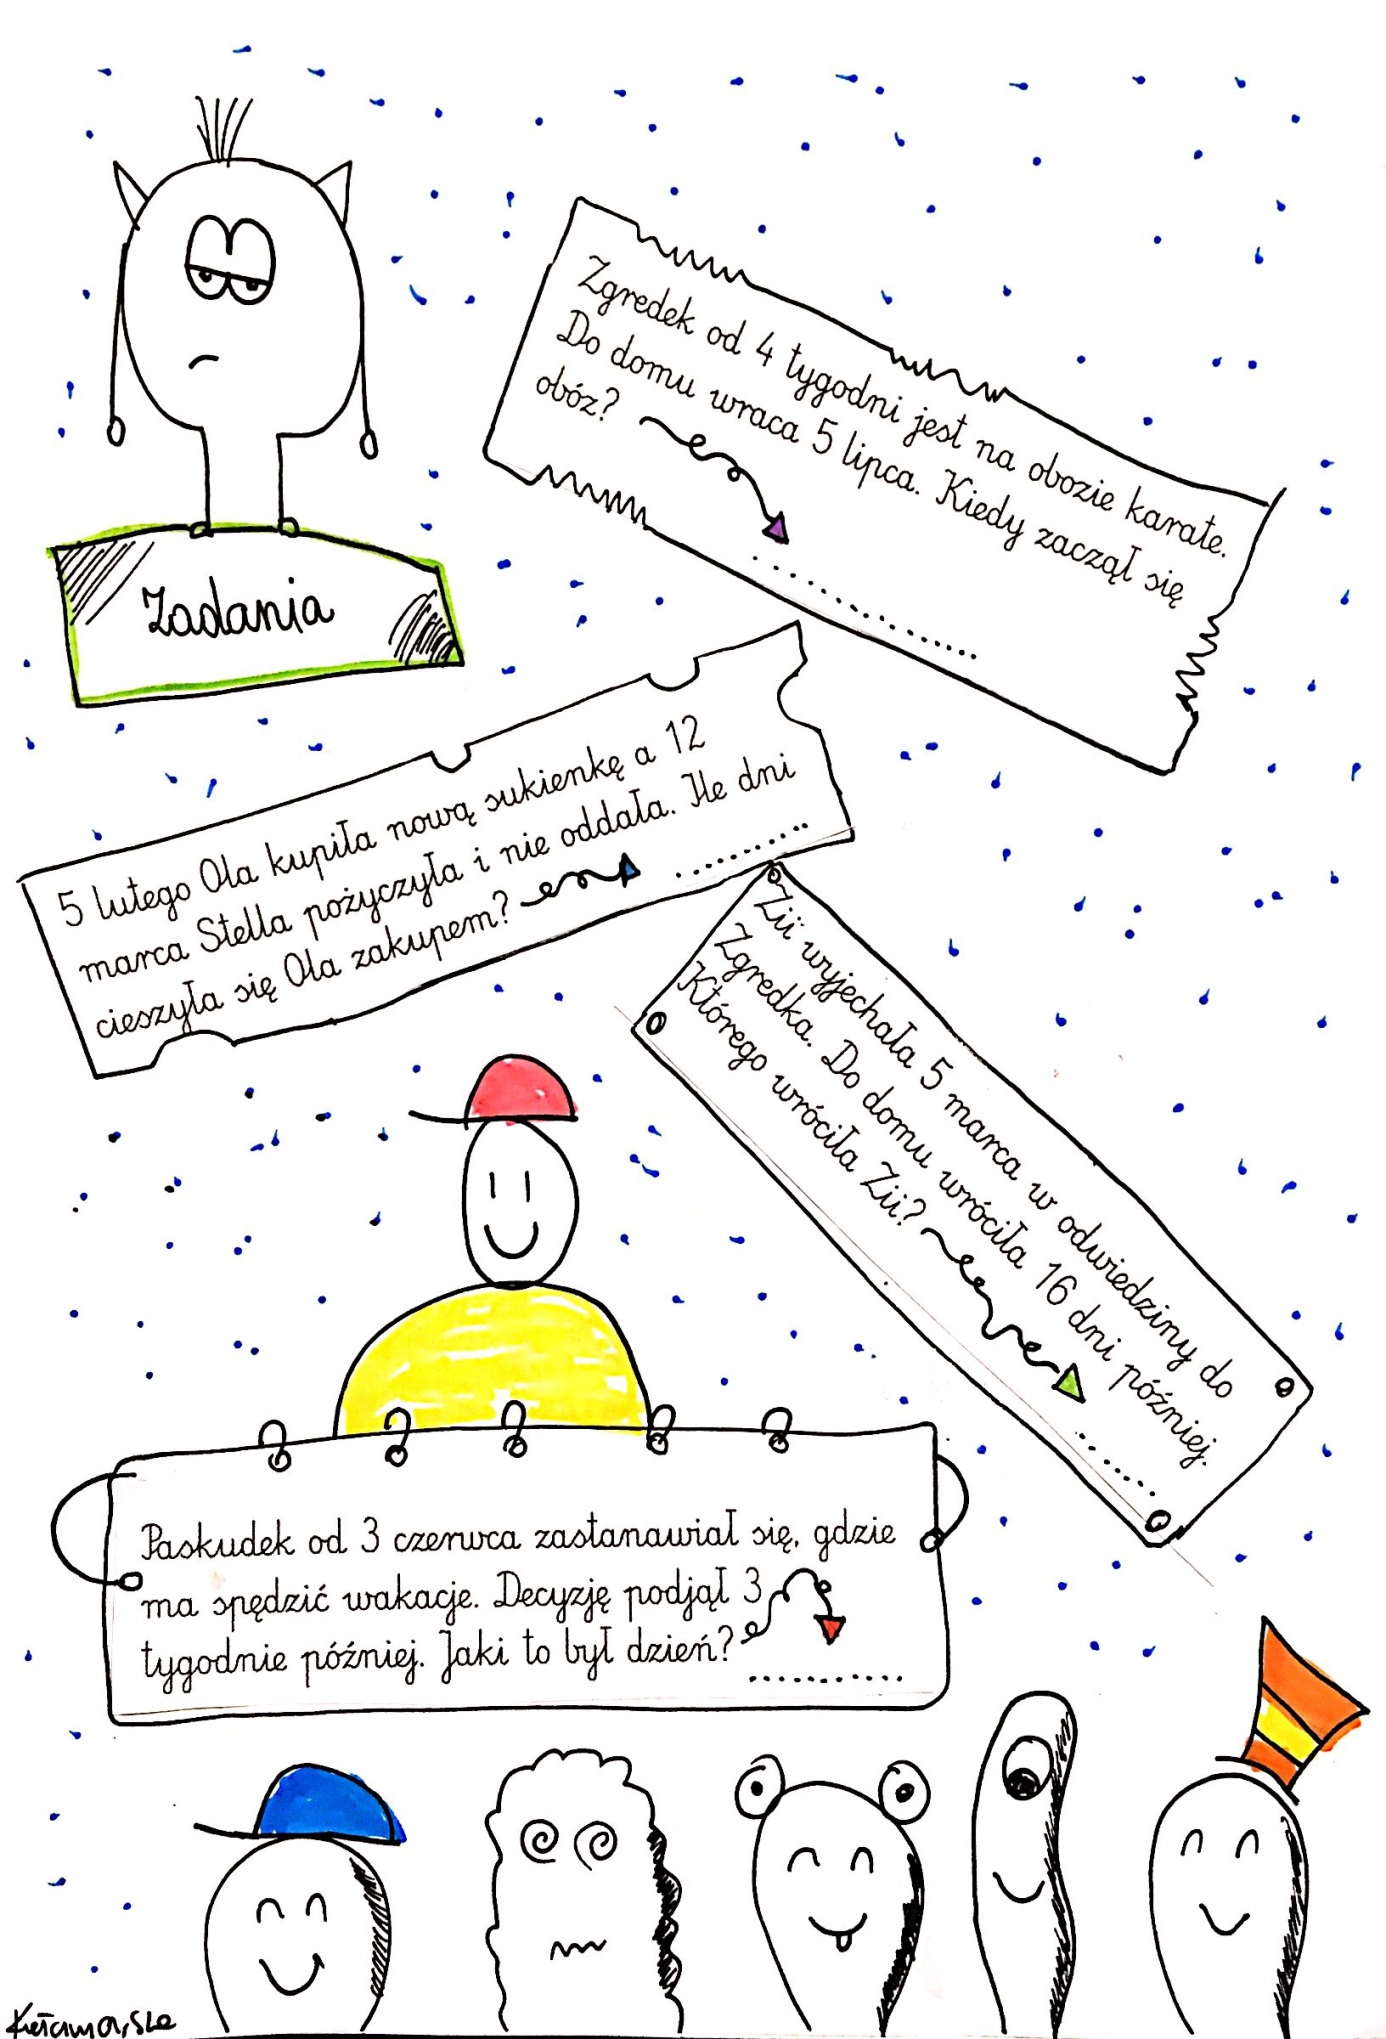 Zadania
Zgredek od 4 tygodni jest na obozie karate.
Do domu wraca 5 lipca. Kiedy zaczął się
obóz?
5 lutego Ola kupiła nową sukienkę a 12
marca Stella pożyczyła i nie oddała. Ile dni
cieszyła się Ola zakupem?
Zii wyjechała 5 marca w odwiedziny do
Zgredka. Do domu wróciła 16 dni później.
Którego wróciła Zii?
Paskudek od 3 czerwca zastanawiał się, gdzie
ma spędzić wakacje. Decyzję podjął 3
tygodnie później. Jaki to był dzień?